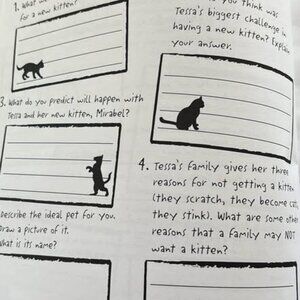 1. What
for a new kitten?
3. What do you predict will happen with
Tessa and her new kitten, Mirabel?
Describe the ideal pet for you.
Draw a picture of it.
What is its name?
you think was
Tessa's biggest challenge in
having a new kitten? Explain
your answer.
4. Tessa's family gives her three
reasons for not getting a kitten
(they scratch, they become cats,
they stink). What are some other
reasons that a family may NOT
want a kitten?